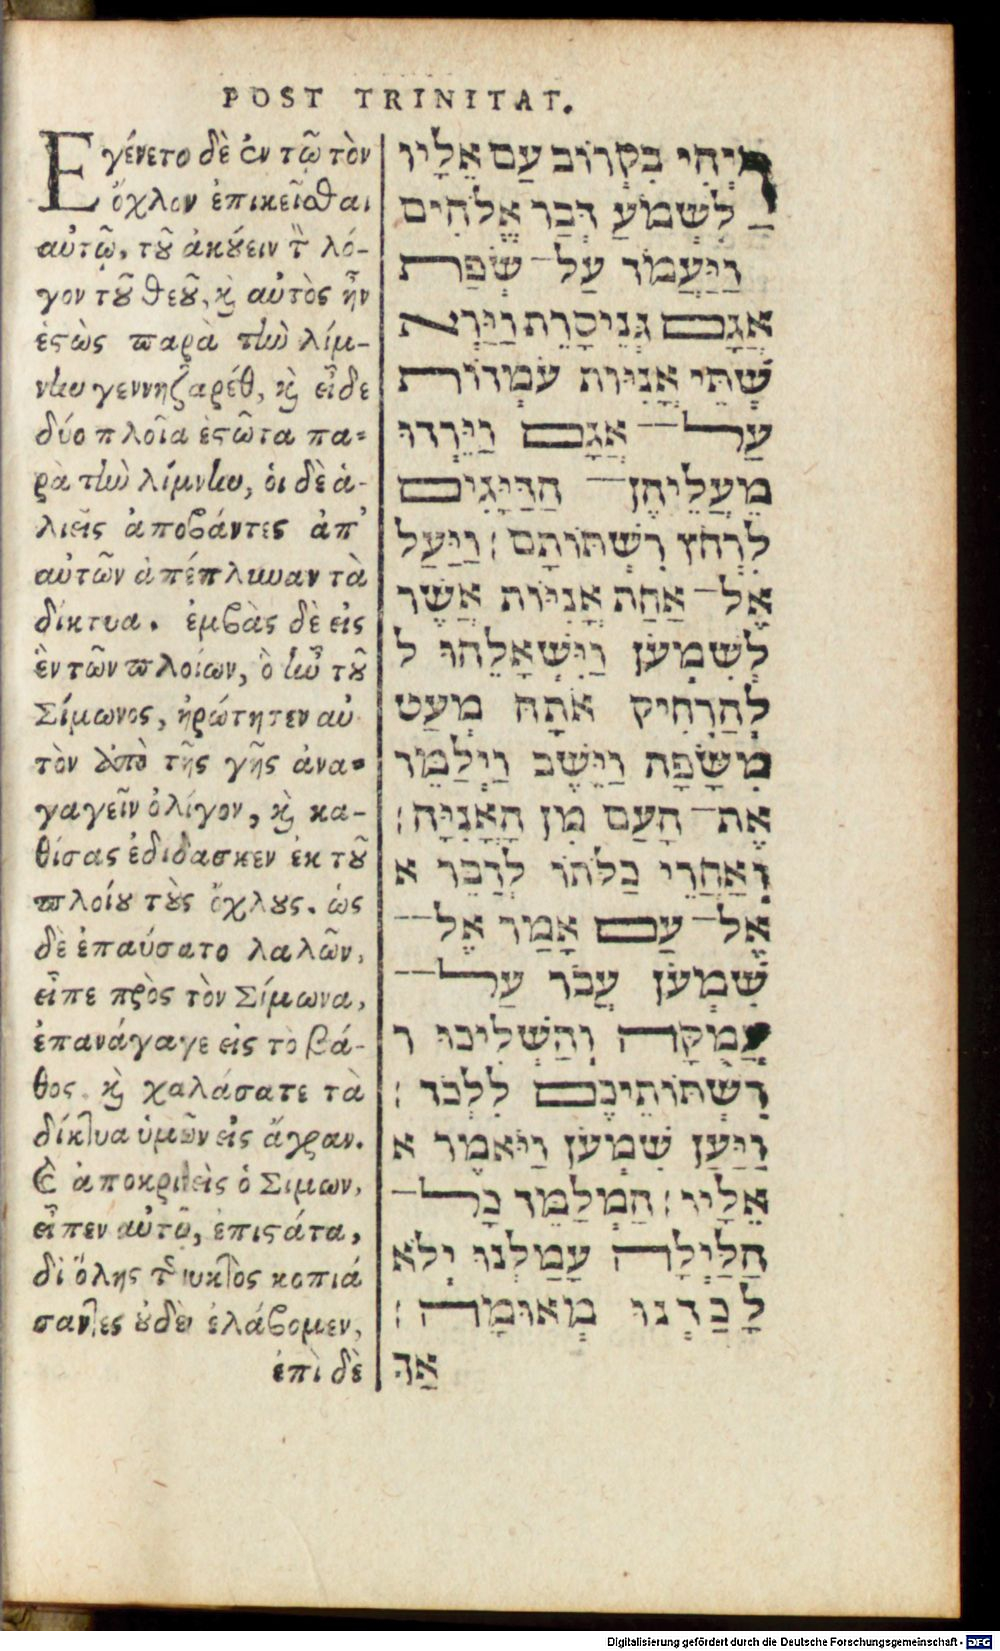 POST TRINITAT.
Εγένετο δὲ ἐν τῷ τὸν
ὄχλον ἐπικεῖσθαι
αὐτῷ, τοῦ ἀκούειν τὸν λό-
γον τοῦ θεοῦ, καὶ αὐτὸς ἦν
ἑστὼς παρὰ τὴν λίμ-
νην γεννηζαρέθ, καὶ εἶδε
δύο πλοῖα ἑστῶτα πα-
ρὰ τὴν λίμνην, οἱ δὲ ἁ-
λιεῖς ἀποβάντες ἀπ'
αὐτῶν ἀπέπλυναν τὰ
δίκτυα. ἐμβὰς δὲ εἰς
ἓν τῶν πλοίων, ὃ ἦν τοῦ
Σίμωνος, ἠρώτησεν αὐ
τὸν ἀπὸ τῆς γῆς ἀνα-
γαγεῖν ὀλίγον, καὶ κα-
θίσας ἐδίδασκεν ἐκ τοῦ
πλοίου τοὺς ὄχλους. ὡς
δὲ ἐπαύσατο λαλῶν,
εἶπε πρὸς τὸν Σίμωνα,
ἐπανάγαγε εἰς τὸ βά-
θος. καὶ χαλάσατε τὰ
δίκτυα ὑμῶν εἰς ἄγραν.
Καὶ ἀποκριθεὶς ὁ Σίμων,
εἶπεν αὐτῷ, ἐπιστάτα,
δι' ὅλης τῆς νυκτὸς κοπιά
σαντες οὐδὲν ἐλάβομεν,
ἐπὶ δὲ
וַיְהִי בִקְרוֹב עַם אֵלָיו
לִשְׁמֹעַ דְּבַר אֱלֹהִים
וַיַּעֲמֹד עַל־ שְׂפַת
אֲגַם גְּנֵיסָרֵת וַיַּרְא
שְׁתֵּי אֳנִיּוֹת עֹמְדוֹת
עַל־ אֲגַם וַיֵּרְדוּ
מֵעֲלֵיהֶן־ הַדַּיָּגִים
לִרְחֹץ רִשְׁתוֹתָם׃ וַיַּעַל
אֶל־ אַחַת אֳנִיּוֹת אֲשֶׁר
לְשִׁמְעֹן וַיִּשְׁאָלֵהוּ ל
לְהַרְחִיק אֹתָהּ מְעַט
מִשָּׂפָה וַיֵּשֶׁב וַיְלַמֵּד
אֶת־ הָעַם מִן הָאֳנִיָּה׃
וְאַחֲרֵי כַלֹּתוֹ לְדַבֵּר א
אֶל־ עַם אָמַר אֶל־
שִׁמְעֹן עֲבֹר עַל־
עֲמֻקָּה וְהַשְׁלִיכוּ ר
רִשְׁתוֹתֵיכֶם לִלְכֹּד׃
וַיַּעַן שִׁמְעֹן וַיֹּאמֶר א
אֵלָיו׃ הַמְלַמֵּד כָּל־
הַלַּיְלָה עָמַלְנוּ וְלֹא
לָכַדְנוּ מְאוּמָה׃
אַךְ
Digitalisierung gefördert durch die Deutsche Forschungsgemeinschaft - DFG